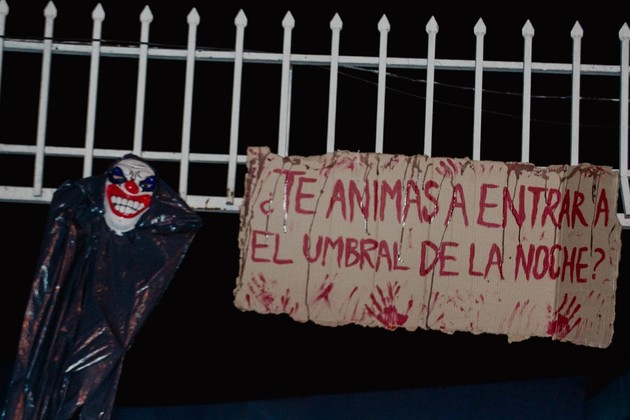 ¿TE ANIMAS A ENTRAR A
EL UMBRAL DE LA NOCHE?